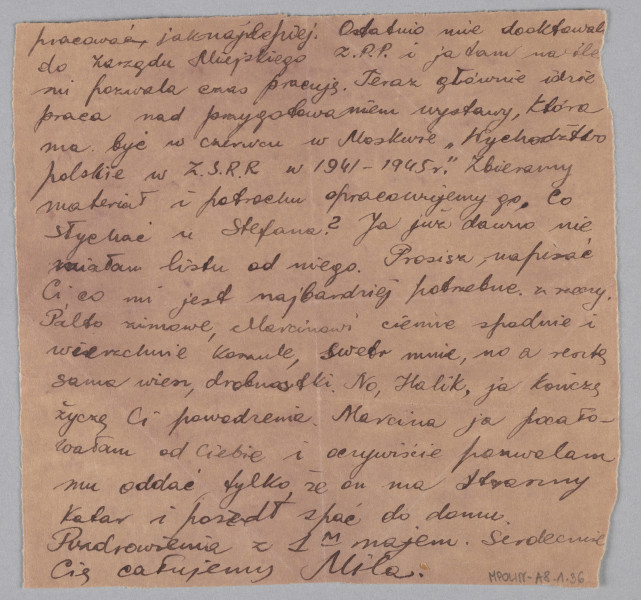 pracować, jaknajlepiej. Ostatnio mnie dooktowali
do Zarządu Miejskiego Z.P.P. i ja tam na ile
mi pozwala czas pracuję. Teraz głównie idzie
praca nad przygotowaniem wystawy, która
ma być w czerwcu w Moskwie „Wychodźtwo
polskie w Z.S.R.R w 1941-1945r." Zbieramy
materiał i potrochu opracowujemy go. Co
słychać u Stefana? Ja już dawno nie
miałam listu od niego. Prosisz napisać
Ci co mi jest najbardziej potrzebne z rzeczy.
Palto zimowe, Marcinowi ciemne spodnie i
wierzchnie koszule, swetr mnie, no a resztę
sama wiesz, drobnostki. No, Halik, ja kończę
życzę Ci powodzenia. Marcina ja pocało-
wałam od Ciebie i oczywiście pozwalam
mu oddać tylko, że on ma straszny
katar i poszedł spać do domu.
Pozdrowienia z 1M majem. Serdecznie
Cię całujemy Mila.
MPOLIN-A8.1.36